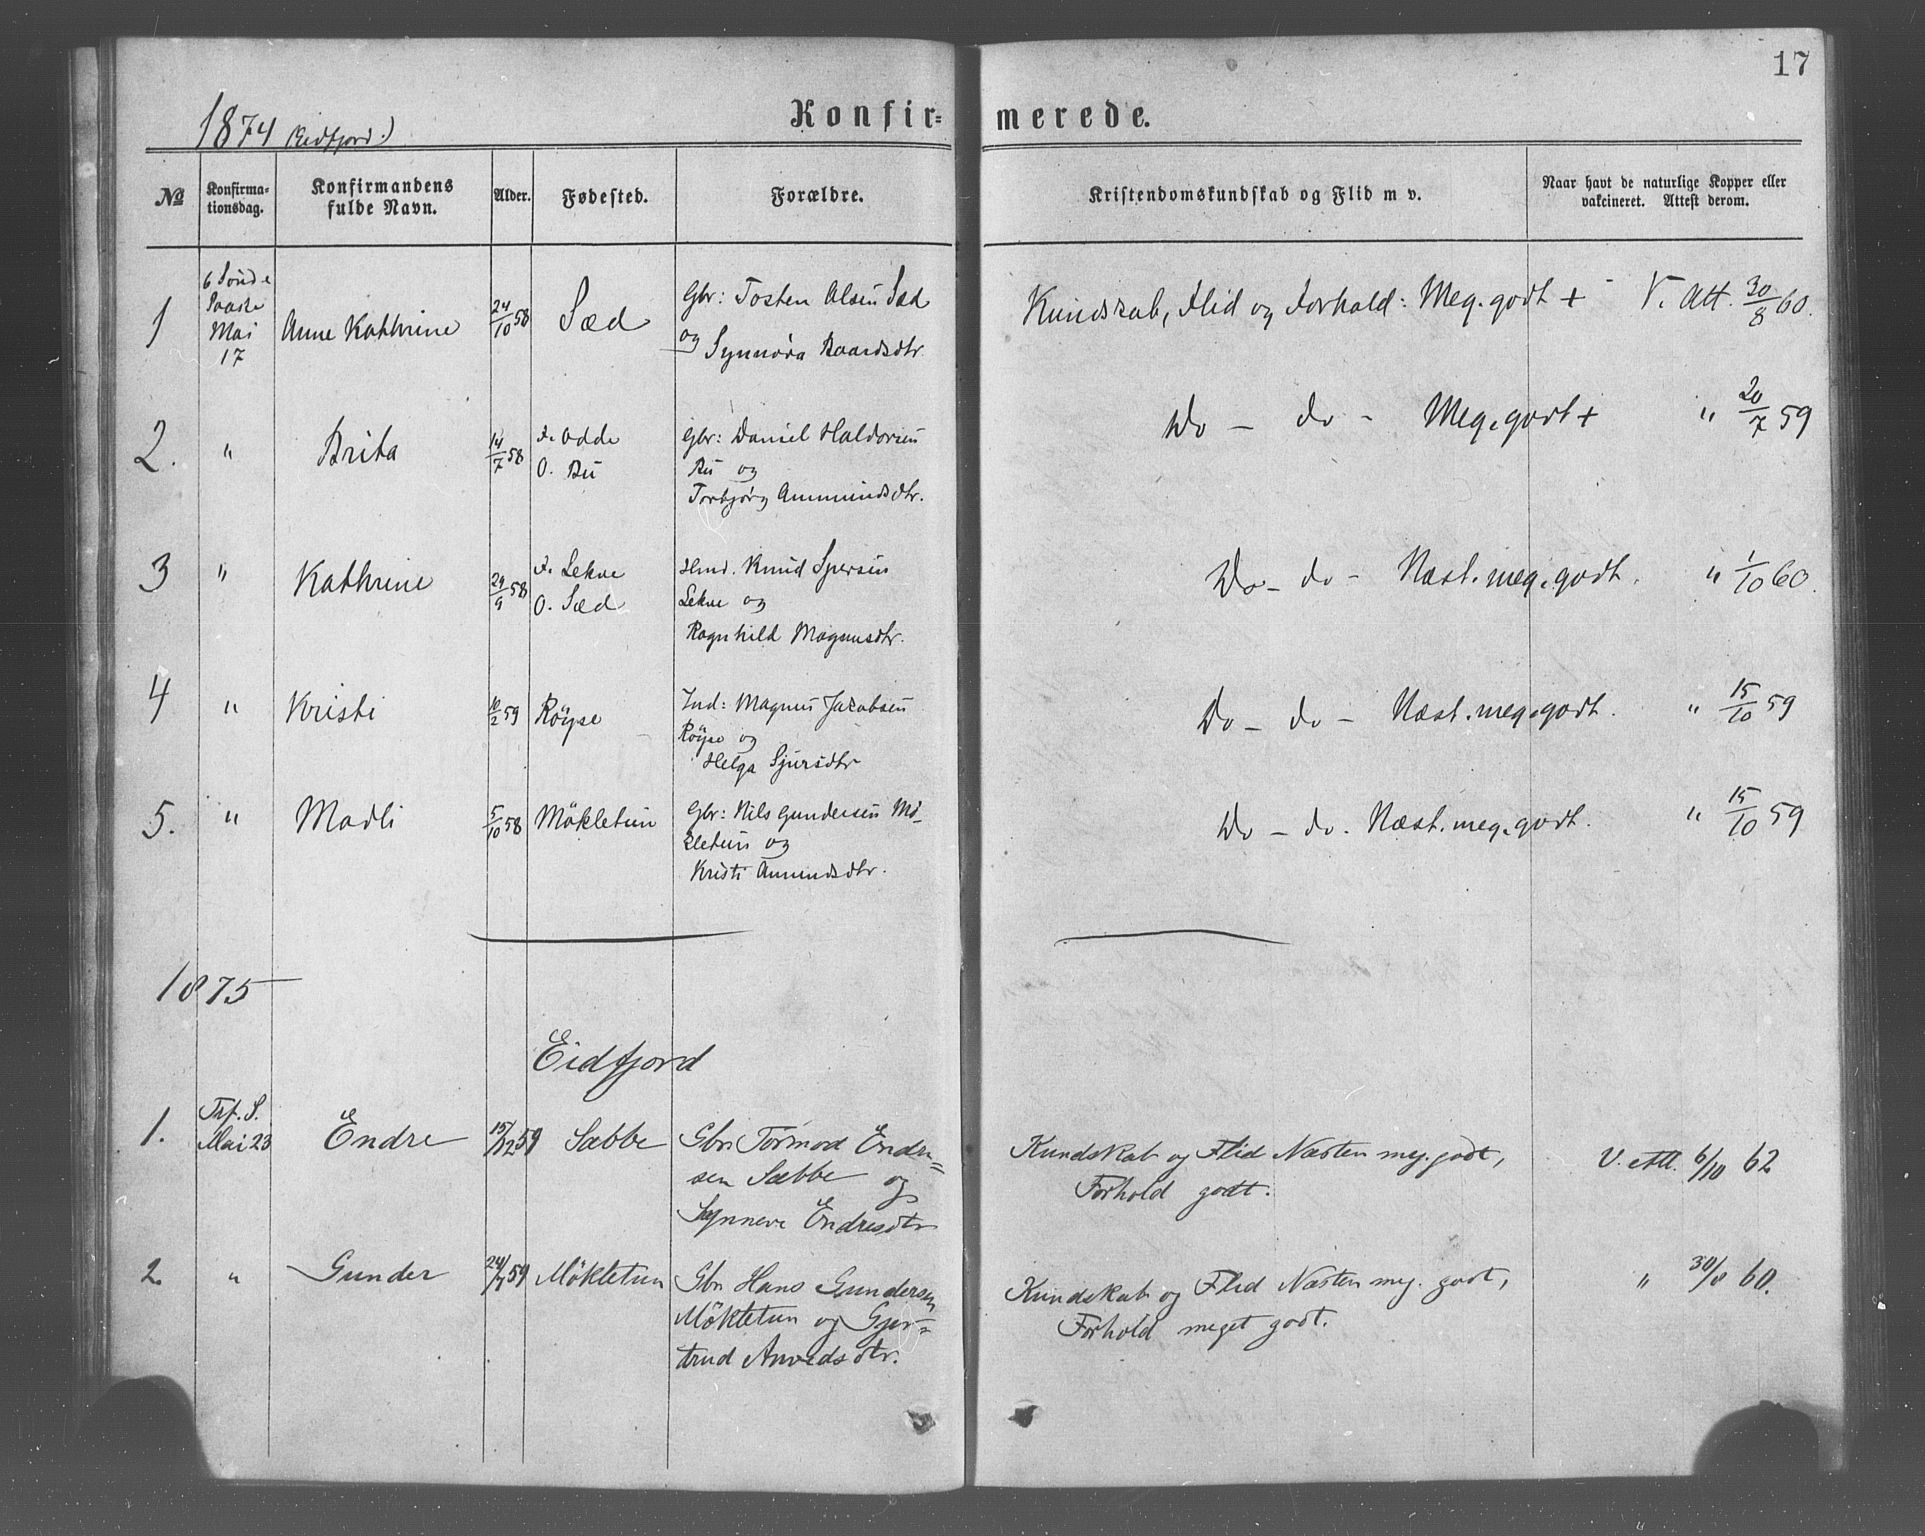 17
1874 (Eidfjord.)
Konfir= merede.
№ Konfirma= tionsdag. Konfirmandens fulde Navn. Alder. Fødested. Forældre. Kristendomskundskab og Flid m v. Naar havt de naturlige Kopper eller vakcineret. Attest derom.
1 6 Sønd e Paaske Mai 17 Anne Kathrine 24/10 58 Sæd Gbr: Tosten Olsen Sæd
og Synnøva Baardsdtr. Kundskab, Flid og Forhold: Meg. godt + V. Att. 30/8 60.
2. " Brita 14/7 58 F. Odde
O. Bu Gbr: Daniel Haldorsen
Bu og
Torbjørg Ammundsdtr. Do – do – Meg. godt + " 20/7 59
3 " Kathrine 29/9 58 F. Lekve
O. Sæd Hmd. Knud Sjursen
Lekve og
Ragnhild Magnusdtr. Do – do – Næst. meg. godt. " 1/10 60.
4 " Kristi 10/2 59 Røyse Ind: Magnus Jakobsen
Røyse og
Helga Sjursdtr Do – do – Næst. meg. godt. " 15/10 59
5. " Madli 5/10 58 Møkletun Gbr: Nils Gundersen Mø-
kletun og
Kristi Amundsdtr. Do – do. Næst. meg. godt. " 15/10 59
1875
Eidfjord
1. Trf. S.
Mai 23 Endre 15/12 59 Sæbbe Gbr. Tormod Endre=
sen Sæbbe og
Synneve Endresdtr Kundskab og Flid Næsten meg. godt,
Forhold godt. V. Att. 6/10 62
2. " Gunder 24/7 59 Møkletun Gbr. Hans Gundersen
Møkletun og Gjer=
trud Arvedsdtr. Kundskab og Flid Næsten meg. godt,
Forhold meget godt. " 30/8 60.